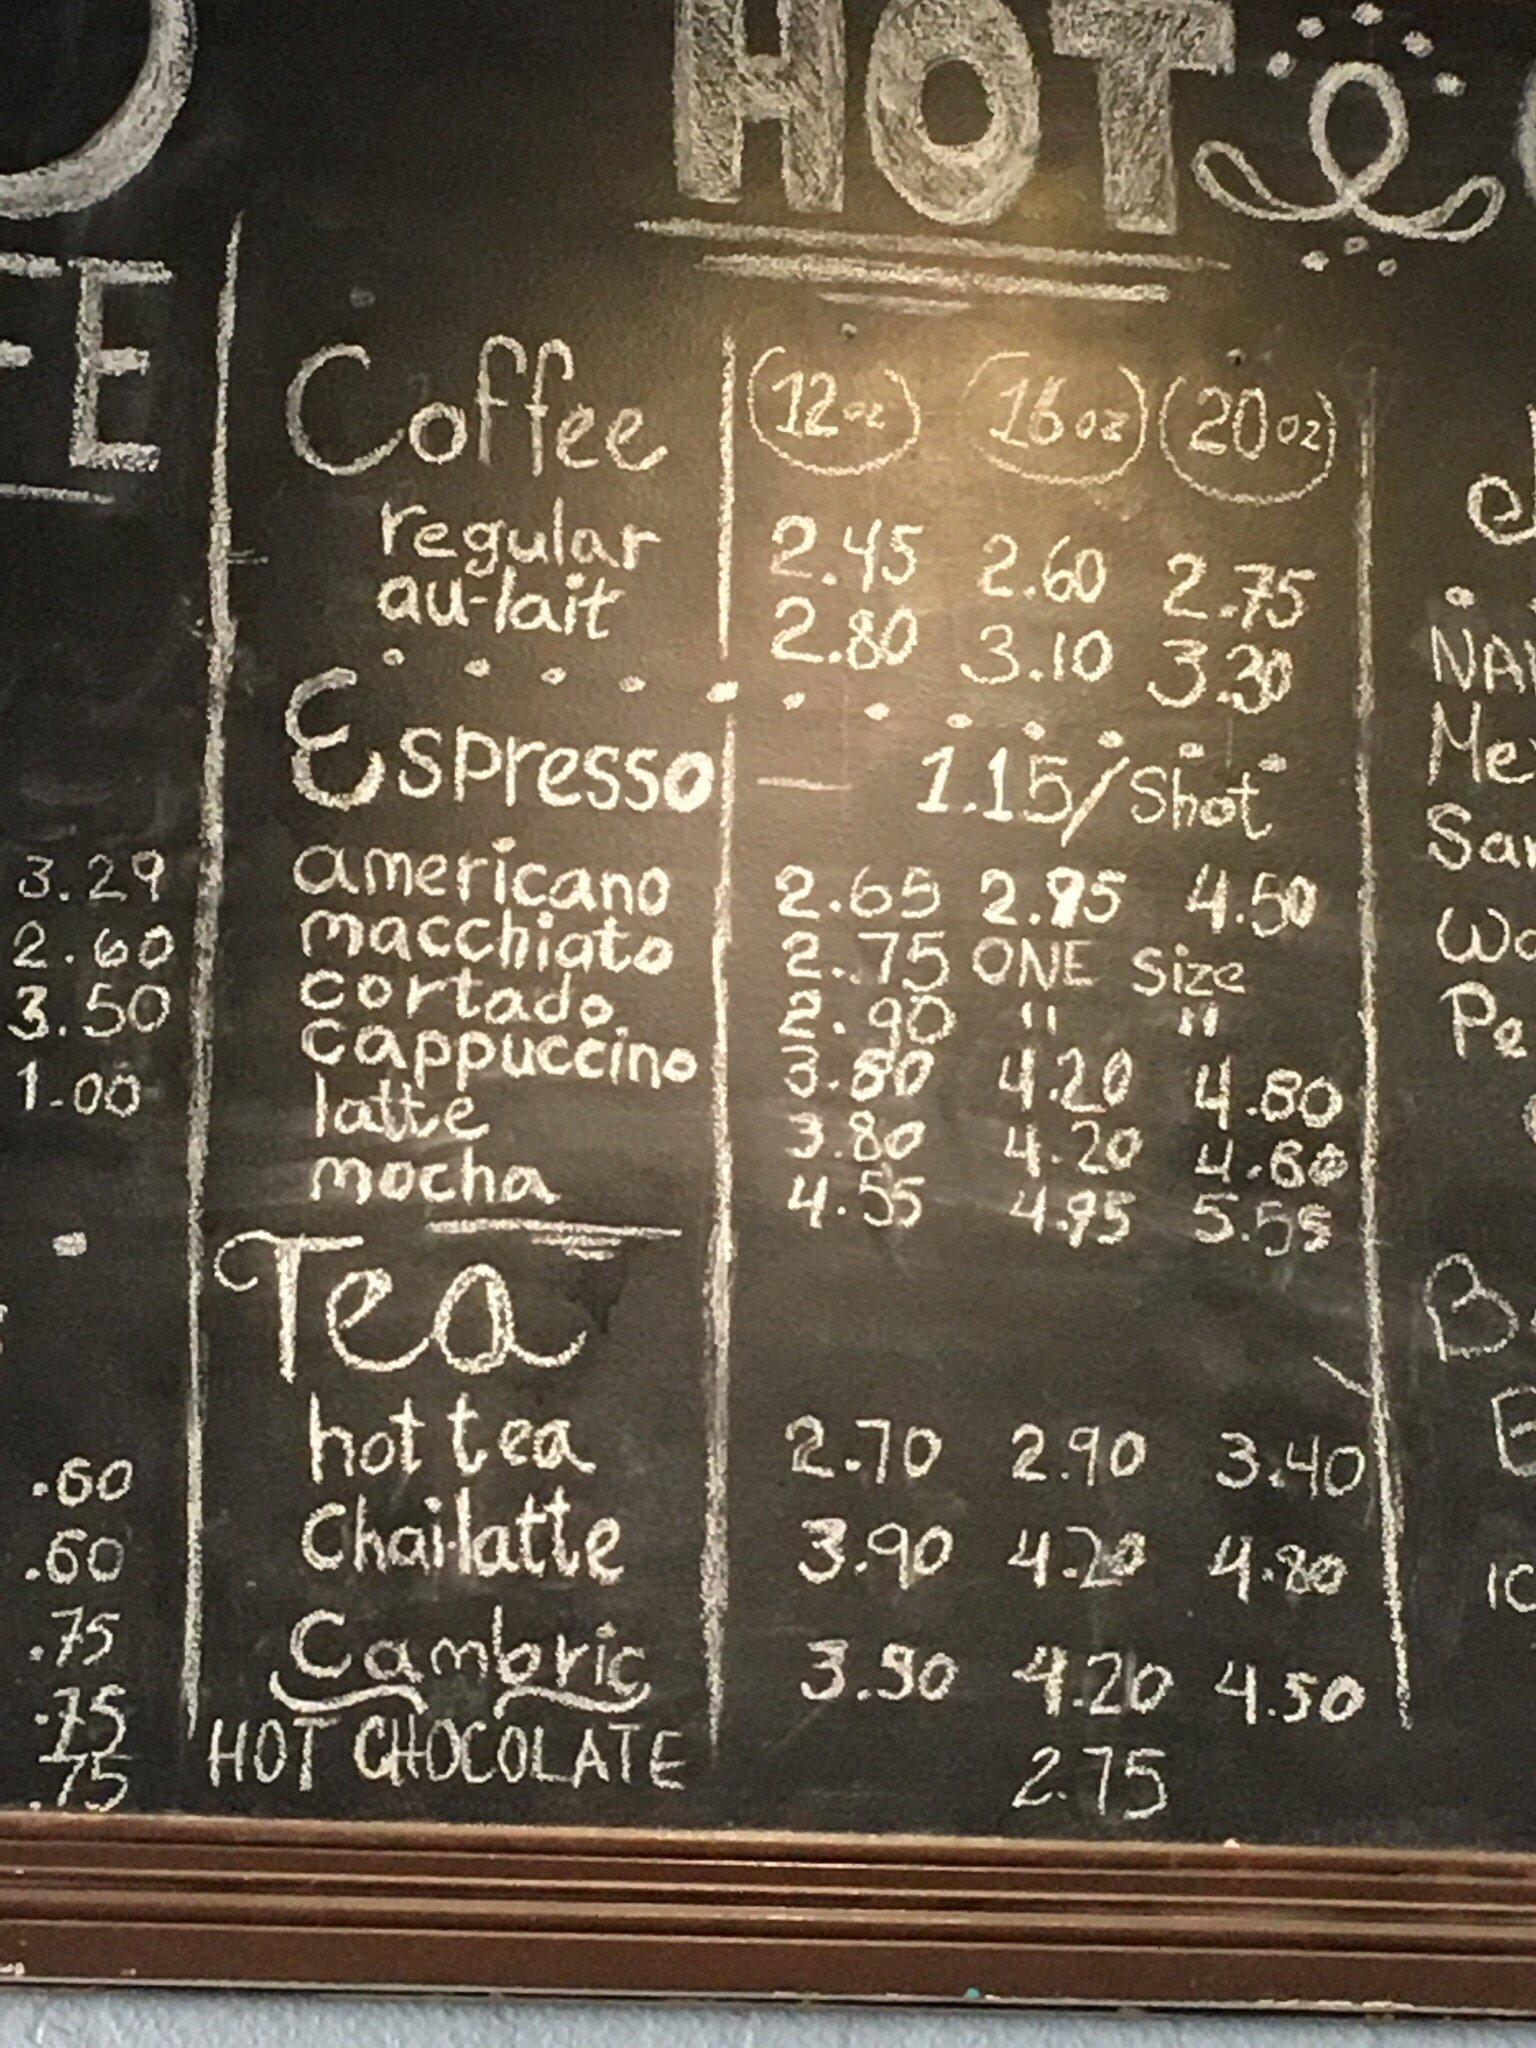 HOT
Coffee 12oz 16oz 20oz
regular 2.45 2.60 2.75
au-lait 2.80 3.10 3.30
Espresso — 1.15/Shot
americano 2.65 2.95 4.50
macchiato 2.75 ONE Size
cortado 2.90 " "
cappuccino 3.80 4.20 4.80
latte 3.80 4.20 4.80
mocha 4.55 4.95 5.55
Tea
hot tea 2.70 2.90 3.40
Chai-latte 3.90 4.20 4.80
Cambric 3.90 4.20 4.50
HOT CHOCOLATE 2.75
3.29
2.60
3.50
1.00
.60
.60
.75
.75
.75